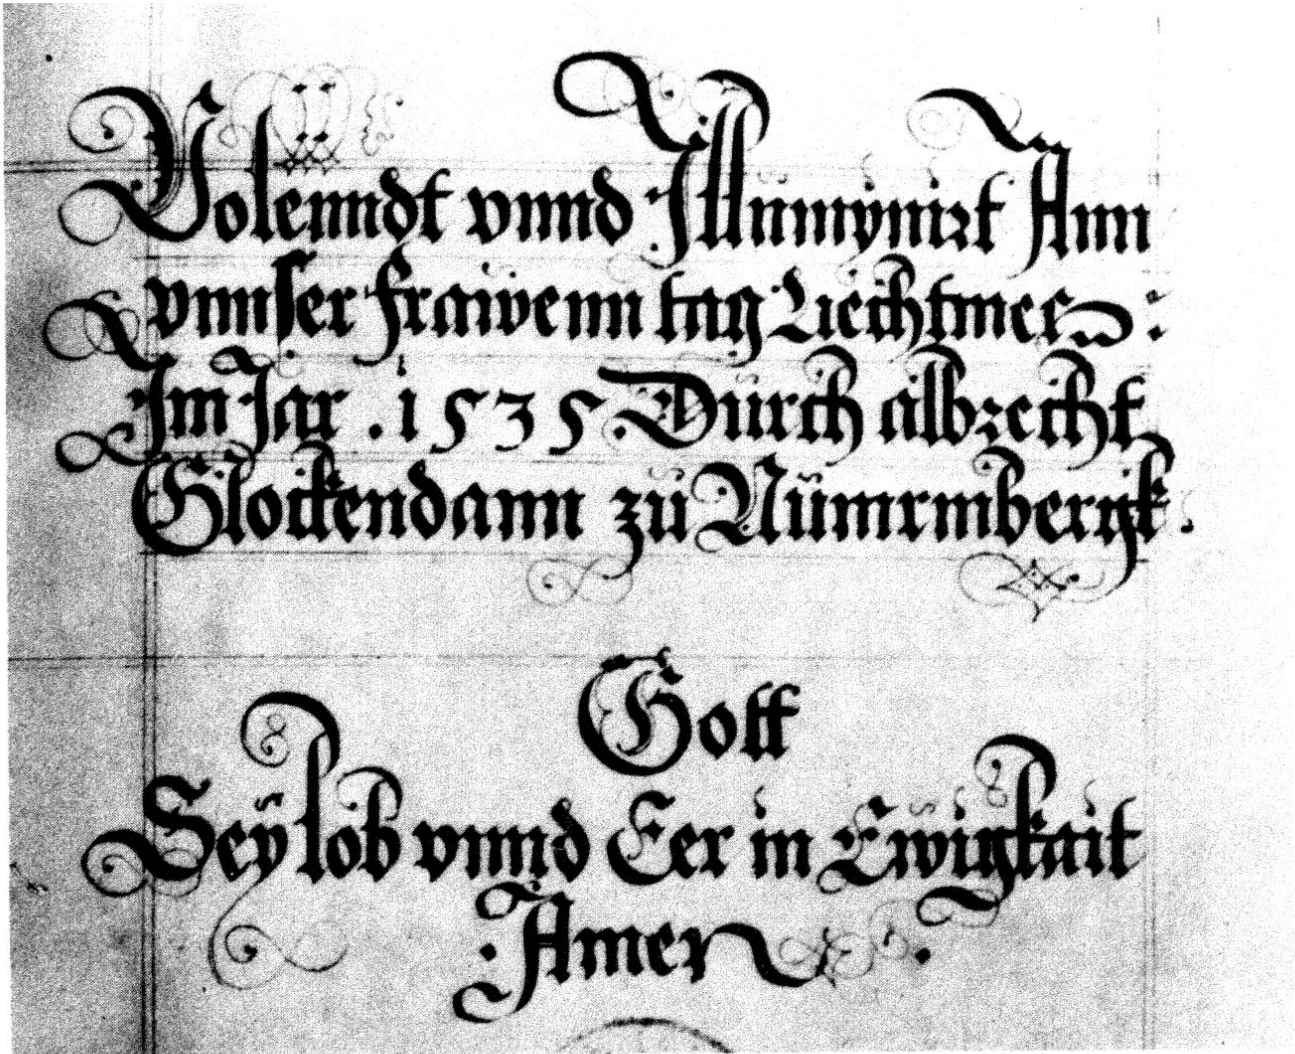 Volenndt vnnd Jllŭminyirt Ann
vnnser frawenn tag Liechtmess :
Jm Jar . 1535 Dŭrch albrecht
Glockendann zŭ Nŭmrmbergk .
Gott
Seÿ lob vnnd Eer in Ewigkait
· Amen .